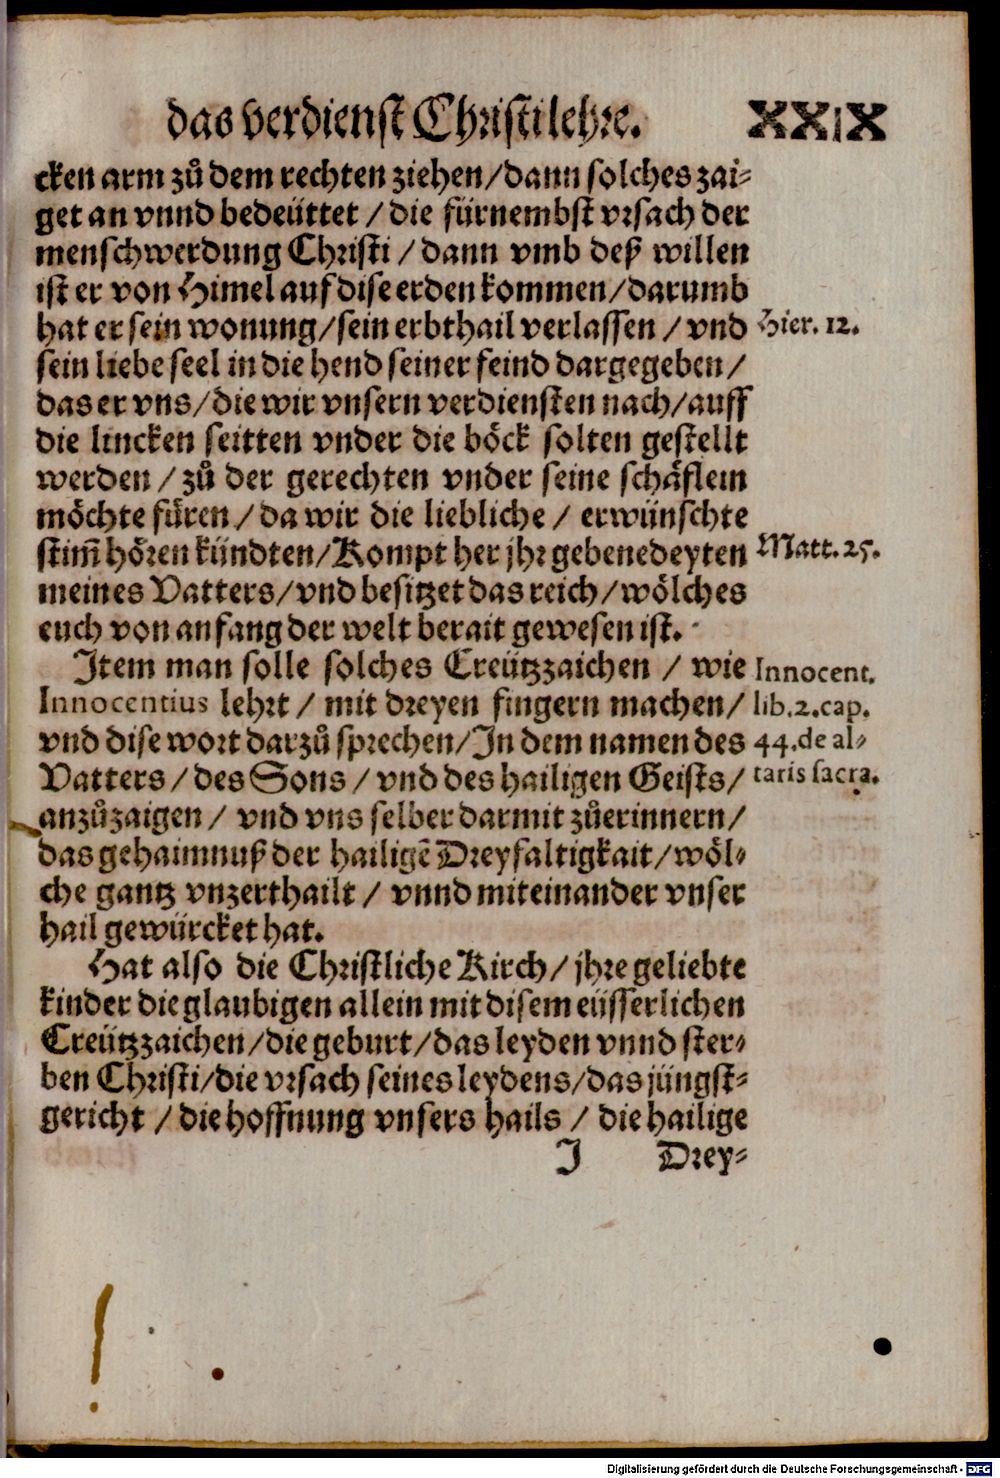 das verdienst Christi lehre. XXIX
cken arm zů dem rechten ziehen/dann solches zai-
get an vnnd bedeüttet / die fürnembst vrsach der
menschwerdung Christi / dann vmb deß willen
ist er von Himel auf dise erden kommen/darumb
hat er sein wonung/sein erbthail verlassen / vnd Hier. 12.
sein liebe seel in die hend seiner feind dargegeben /
das er vns/die wir vnsern verdiensten nach/auff
die lincken seitten vnder die böck solten gestellt
werden / zů der gerechten vnder seine schäflein
möchte füren / da wir die liebliche / erwünschte
stim̃ hören kündten/Kompt her jhr gebenedeyten Matt. 25.
meines Vatters/vnd besitzet das reich/wölches
euch von anfang der welt berait gewesen ist.
Item man solle solches Creützzaichen / wie Innocent.
Innocentius lehrt / mit dreyen fingern machen/ lib.2.cap.
vnd dise wort darzů sprechen/In dem namen des 44.de al-
Vatters / des Sons / vnd des hailigen Geists/ taris sacra.
anzůzaigen / vnd vns selber darmit zůerinnern/
das gehaimnuß der hailigē Dreyfaltigkait/wöl-
che gantz vnzerthailt / vnnd miteinander vnser
hail gewürcket hat.
Hat also die Christliche Kirch/jhre geliebte
kinder die glaubigen allein mit disem eüsserlichen
Creützzaichen/die geburt/das leyden vnnd ster-
ben Christi/die vrsach seines leydens/das jüngst-
gericht / die hoffnung vnsers hails / die hailige
I Drey-
Digitalisierung gefördert durch die Deutsche Forschungsgemeinschaft - DFG